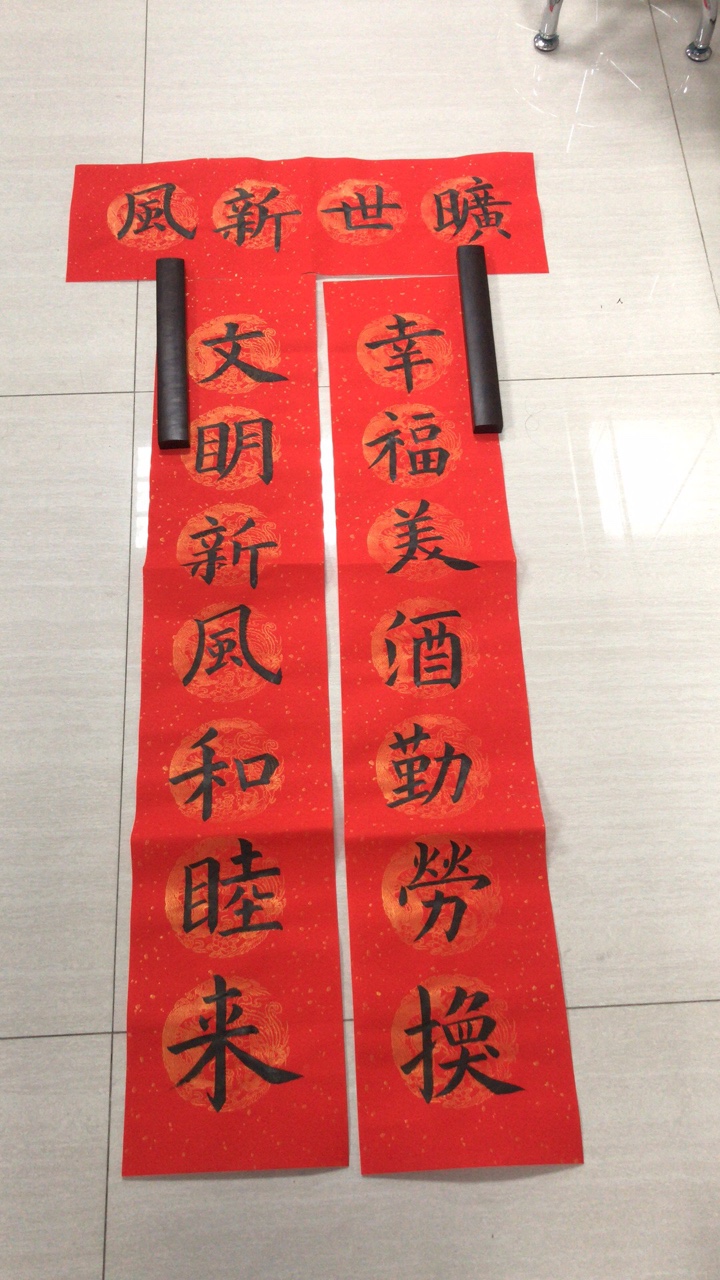 曠世新風
幸福美酒勤勞換
文明新風和睦来